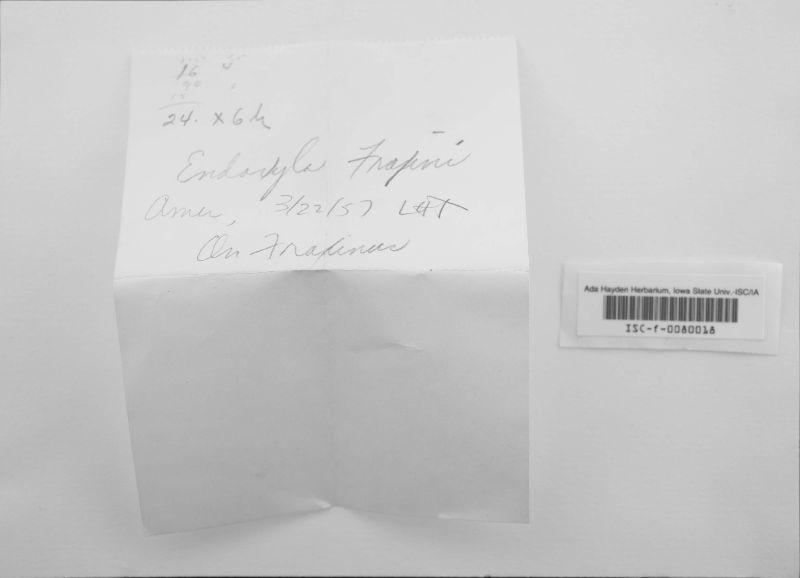 16
24. x 6 h
Endoxyla Fraxini
Ames, 3/22/57 LHT
On Fraxinus
Ada Hayden Herbarium, Iowa State Univ.-ISC/IA
ISC-f-0080018